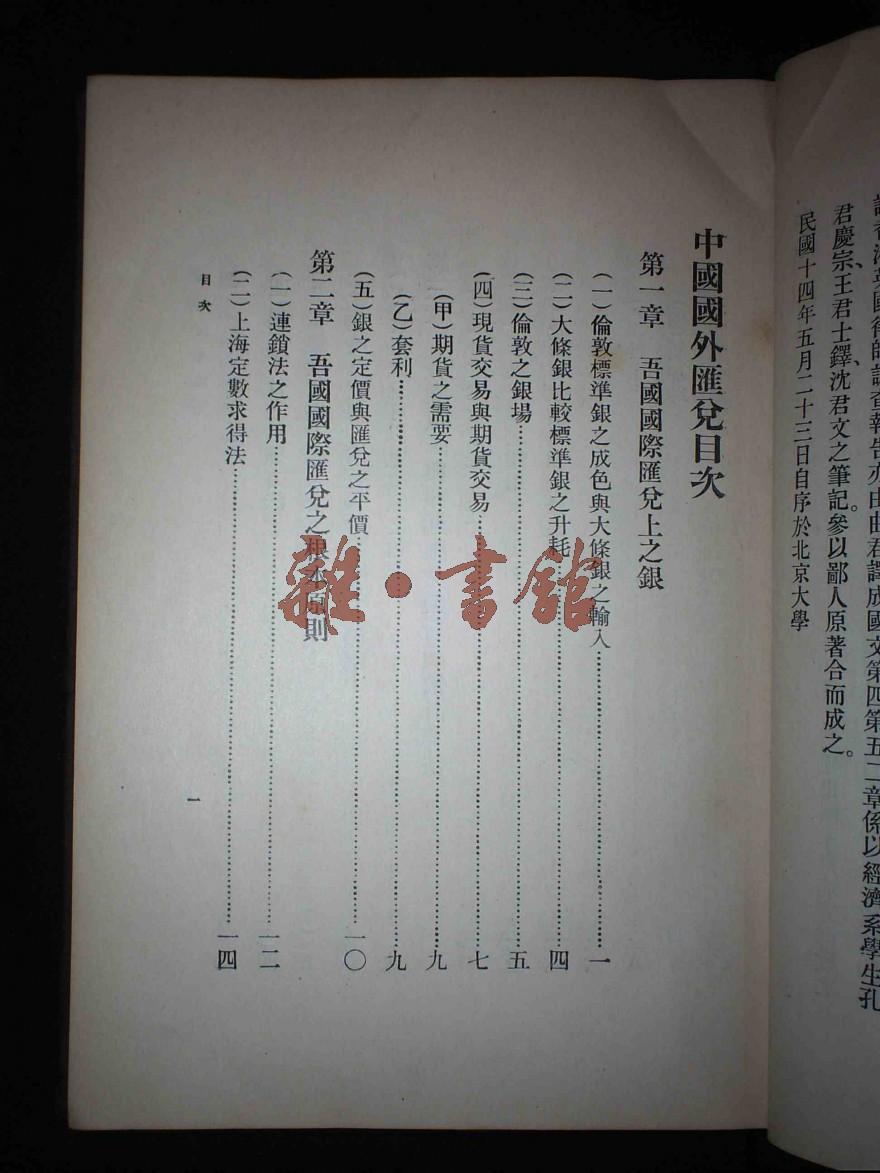 君慶宗、王君士鐸、沈君文之筆記。參以鄙人原著合而成之。
民國十四年五月二十三日自序於北京大學
中國國外匯兌目次
第一章 吾國國際匯兌上之銀
(一)倫敦標準銀之成色與大條銀之輸入…………一
(二)大條銀比較標準銀之升耗…………四
(三)倫敦之銀場…………五
(四)現貨交易與期貨交易…………七
(甲)期貨之需要…………九
(乙)套利…………九
(五)銀之定價與匯兌之平價…………一〇
第二章 吾國國際匯兌之根本原則
(一)連鎖法之作用…………一二
(二)上海定數求得法…………一四
目次
一
雜·書館